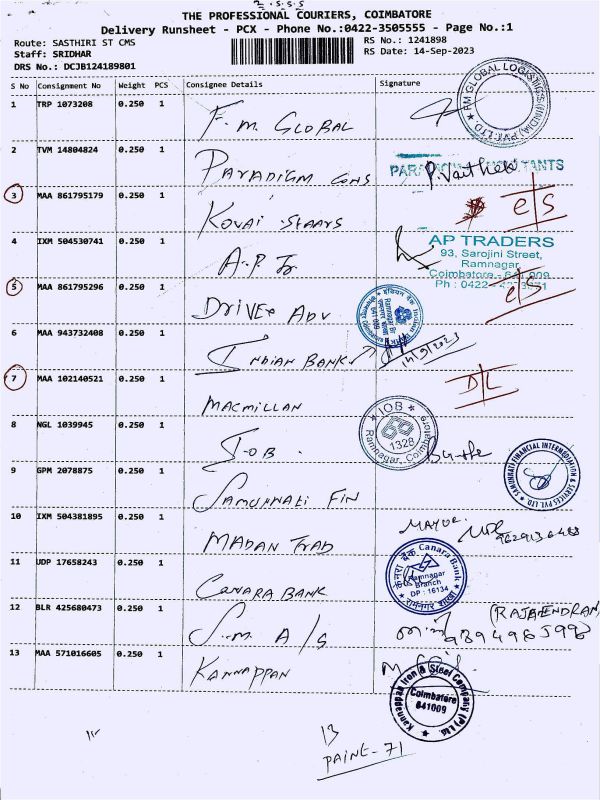 THE PROFESSIONAL COURIERS, COIMBATORE
Delivery Runsheet - PCX - Phone No.:0422-3505555 - Page No.:1
Route: SASTHIRI ST CMS
RS No.: 1241898
Staff: SRIDHAR
RS Date: 14-Sep-2023
DRS No.: DCJB124189801
S No Consignment No Weight PCS Consignee Details Signature
1 TRP 1073208 0.250 1 F.M. GLOBAL
FM GLOBAL LOGISTICS (INDIA) PVT. LTD.
2 TVM 14804824 0.250 1 PARADIGM CONS
3 MAA 861795179 0.250 1 KOVAI STAARS e/s
4 IXM 504530741 0.250 1 A.P Tr
AP TRADERS
93, Sarojini Street,
Ramnagar
Coimbatore - 641 009
Ph : 0422
5 MAA 861795296 0.250 1 DRIVER ADV e/s
6 MAA 943732408 0.250 1 INDIAN BANK 14/9/2023
7 MAA 102140521 0.250 1 MACMILLAN D/L
8 NGL 1039945 0.250 1 I.O.B.
IOB
1328
Ramnagar, Coimbatore
9 GPM 2078875 0.250 1 SAMUNNATI FIN
SAMUNNATI FINANCIAL INTERMEDIATION & SERVICES PVT. LTD.
10 IXM 504381895 0.250 1 MADAN TRAD
11 UDP 17658243 0.250 1 CANARA BANK
केनरा बैंक Canara Bank
Ramnagar
Branch
DP : 16134
रामनगर शाखा
12 BLR 425680473 0.250 1 S.M. A/S (RAJAENDRAN)
13 MAA 571016605 0.250 1 KANNAPPAN
Kannappan Iron & Steel Company (P) Ltd.
Coimbatore
641009
13
PAINE-71